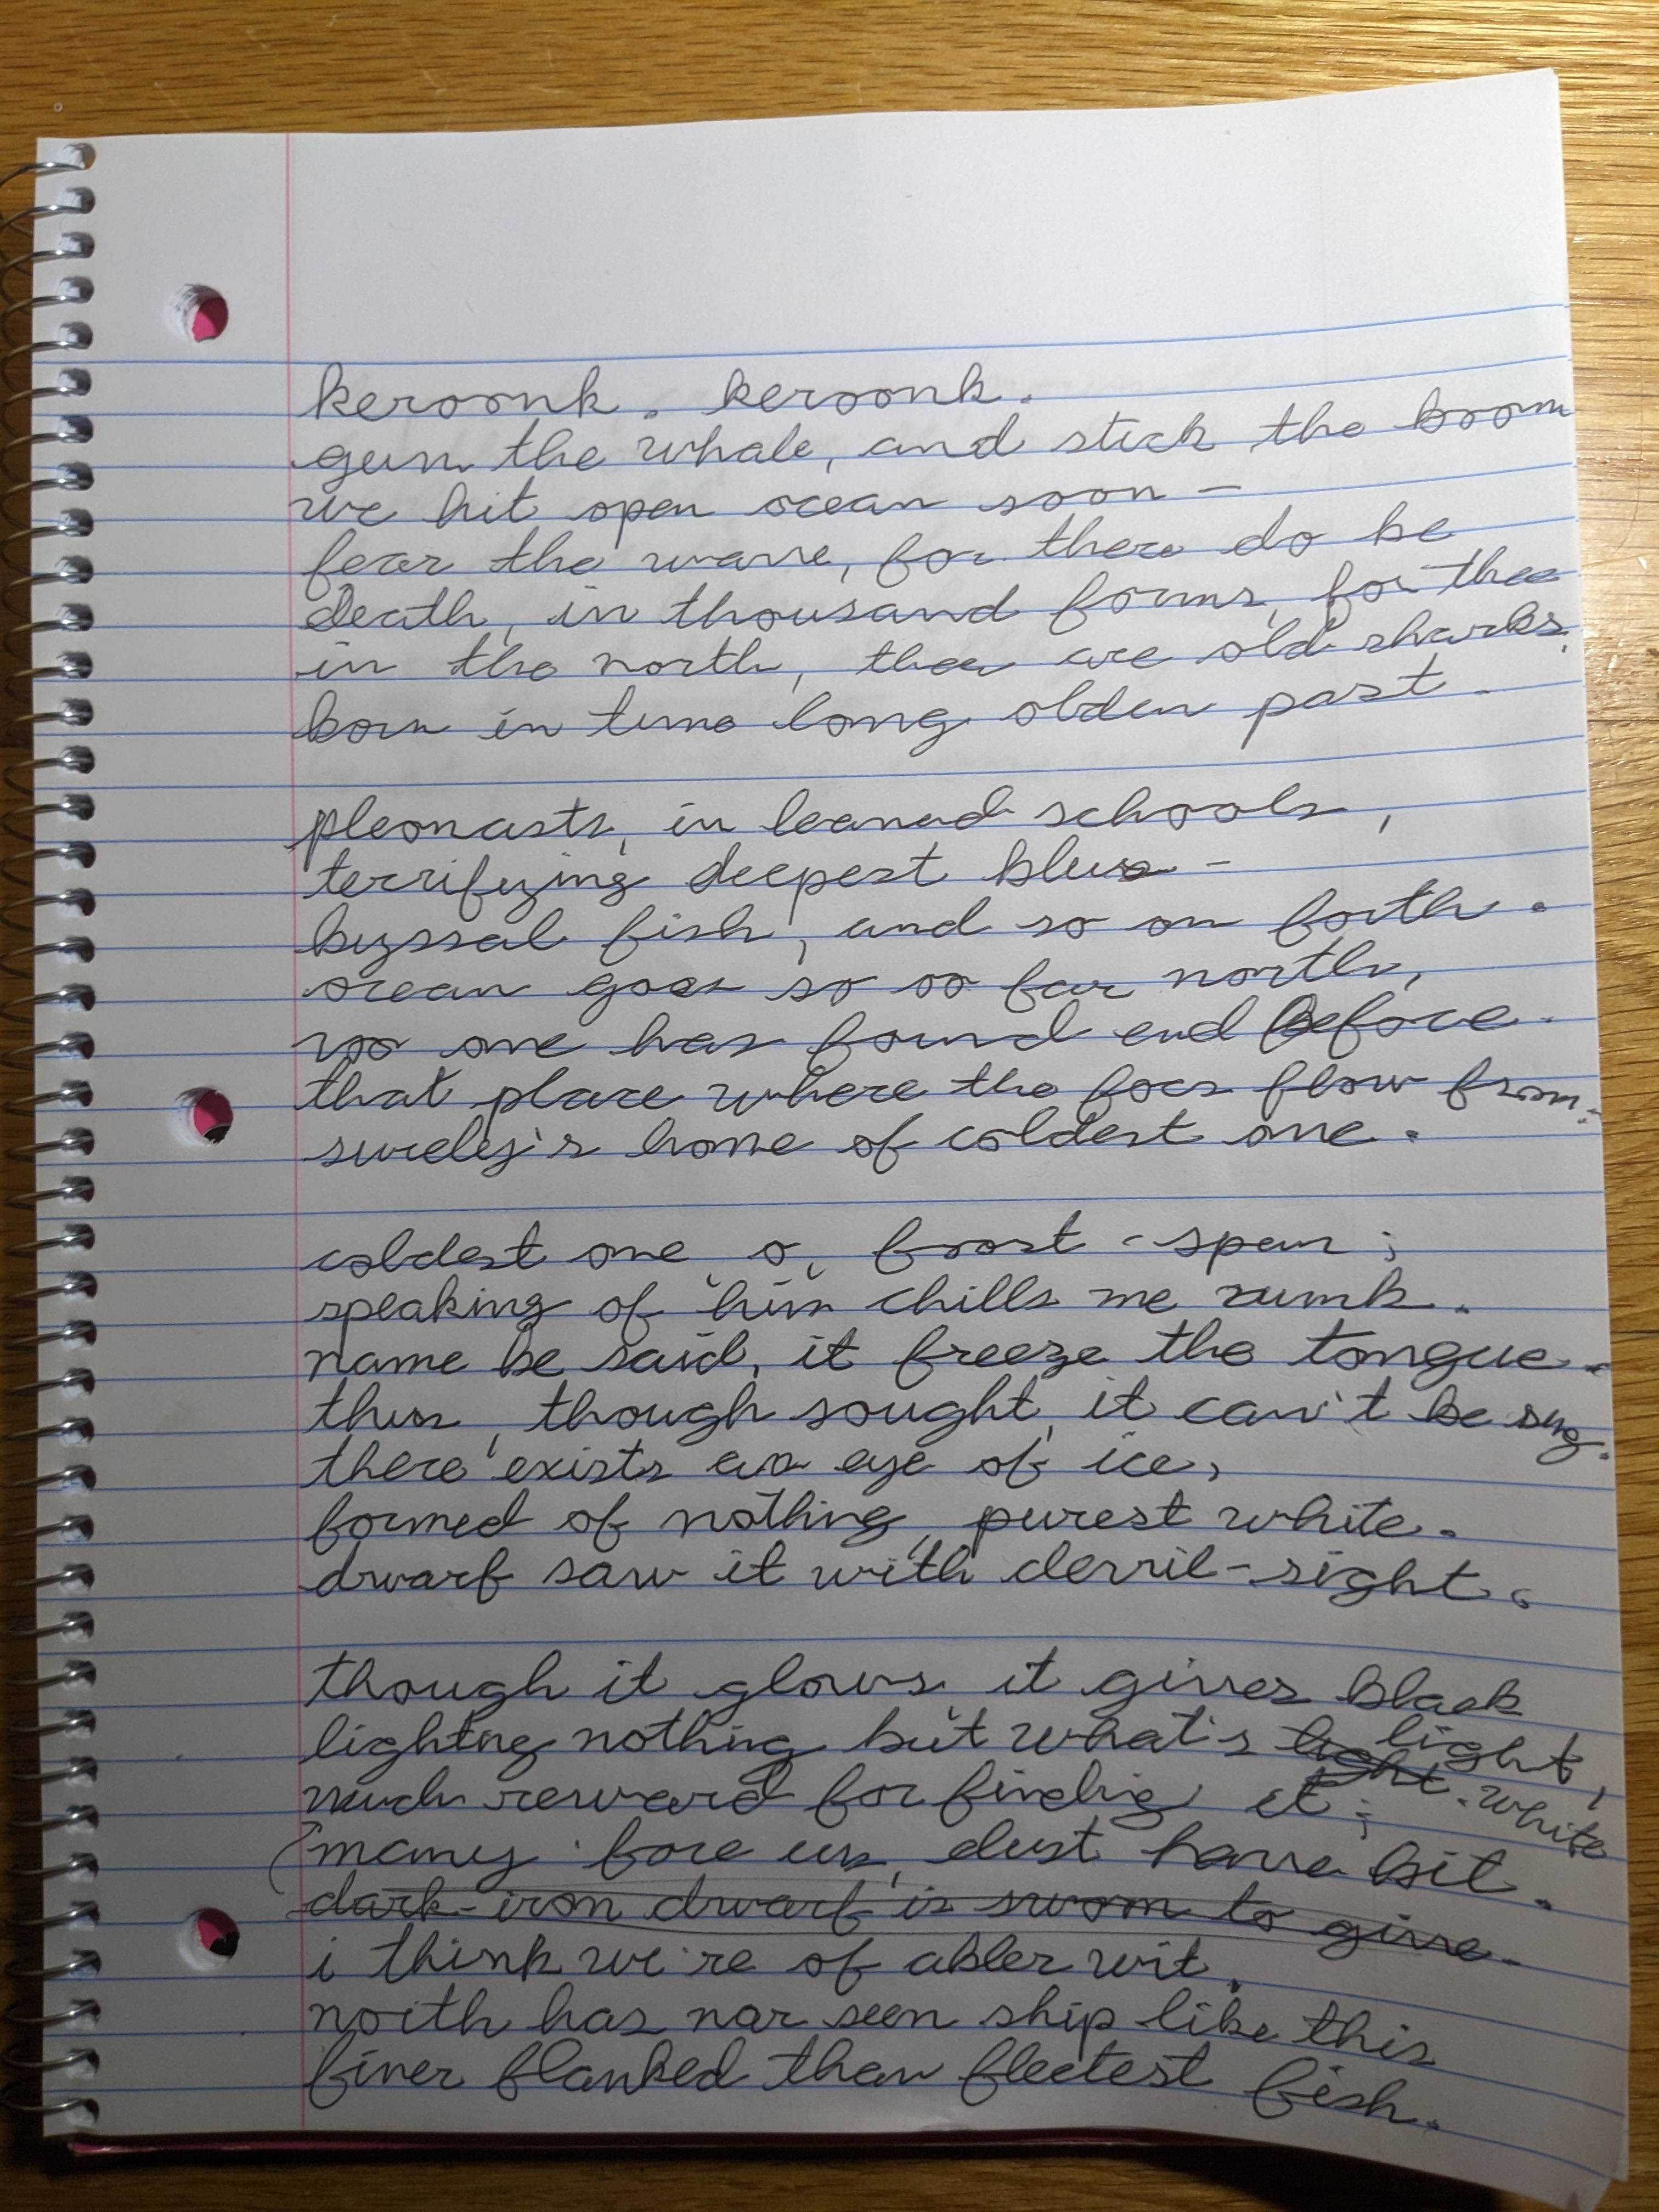 keroonk. keroonk.
gun the whale, and stick the boom
we hit open ocean soon -
fear the wave, for there do be
death, in thousand forms, for thee
in the north, there are old sharks,
born in time long olden past.
pleonasts, in learned schools,
terrifying deepest blues -
byssal fish, and so on forth.
ocean goes so oo far north,
no one has found end before.
that place where the foes flow from:
surely's home of coldest one.
coldest one, o, frost-spun;
speaking of him chills me rumk.
name be said, it freeze the tongue.
thus, though sought, it can't be sung.
there exists an eye of ice,
formed of nothing, purest white.
dwarf saw it with devil-sight.
though it glows, it gives black light,
lighting nothing but what's light. white
much reward for finding it;
many fore us, dust have bit.
dark-iron dwarf is sworn to give
i think we're of abler wit.
north has nar seen ship like this
finer flanked than fleetest fish.